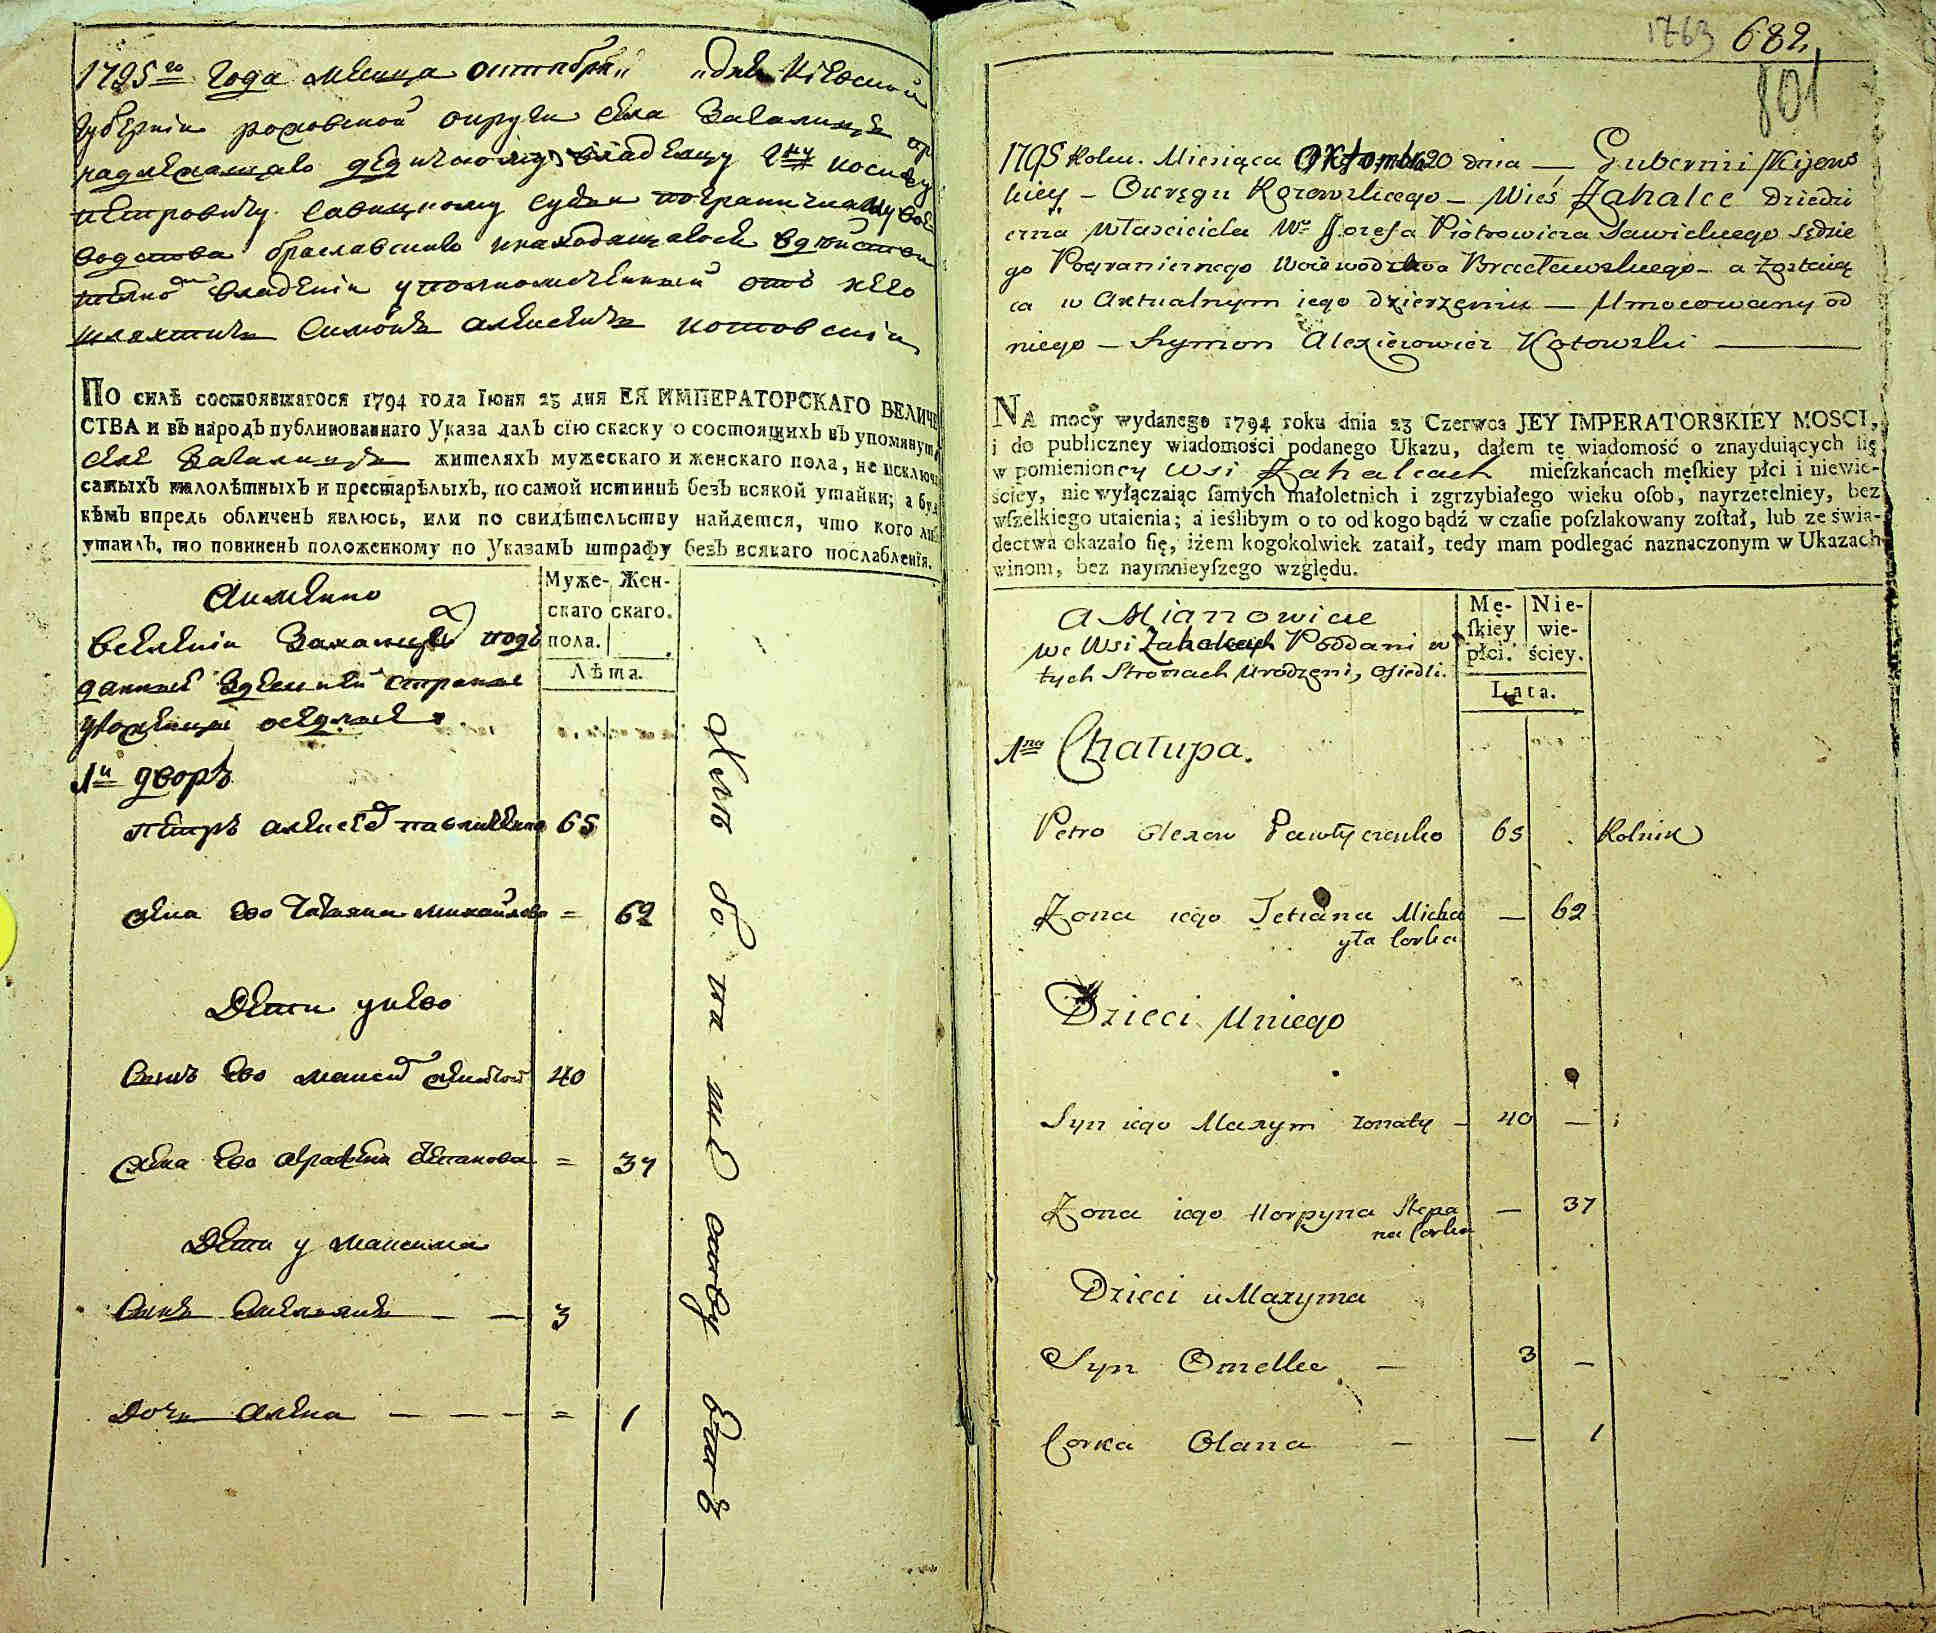 1795го года месяца октября дня Кіевской
губерніи роховской округи села Захалицъ пр
надлежащаго дедичному владелцу Гну иосифу
петровичу Савицкому судіи пограничному вое
водства браславского и находящагося в действи
телномъ владеніи уполномоченный отъ него
шляхтичъ Симонъ алексеевичъ котовскій
ПО силѣ состоявшагося 1794 года Іюня 23 дня ЕЯ ИМПЕРАТОРСКАГО ВЕЛИЧЕ
СТВА и въ народъ публикованнаго Указа далъ сію скаску о состоящихъ въ упомянут
селе жителяхъ мужескаго и женскаго пола, не исключ
самыхъ малолѣтныхъ и престарѣлыхъ, по самой истиннѣ безъ всякой утайки; а буд
кѣмъ впредь обличенъ явлюсь, или по свидѣтельству найдется, что кого ли
утаилъ, то повиненъ положенному по Указамъ штрафу безъ всякаго послабленія.
Аименно
Вселеніи подъ
данные здешней стране
уроженцы оседлые
Муже- Жен-
скаго скаго.
пола.
Лѣта.
1й дворъ
петръ алексеев павличенко 65
жена ево Татьяна михайлова = 62
Дети унево
Сынъ ево максим женатой 40
жена ево Степанова = 37
Дети у максима
Сынъ Омельянъ — — 3
Дочь алена — — — = 1
1763 682.
801
1795 Roku. Miesiąca Oktombra 20 dnia — Gubernii Kijows
kiey — Okręgu Rozowskiego — Wieś Zahalce Dziedzi
czna Własciciela Wo Jozefa Piotrowicza Sawickiego Sędzie
go Pogranicznego Woiewodztwa Bracławskiego — a Zostaią
ca w Aktualnym iego dzierzeniu — Umocowany od
niego — Szymon Alexieiowicz Kotowski
NA mocy wydanego 1794 roku dnia 23 Czerwca JEY IMPERATORSKIEY MOSCI,
i do publiczney wiadomości podanego Ukazu, dąłem tę wiadomość o znayduiących się
w pomienioney Wsi Zahalcach mieſzkańcach męſkiey płci i niewie-
ściey, nie wyłączaiąc ſamych małoletnich i zgrzybiałego wieku oſob, nayrzetelniey, bez
wſzelkiego utaienia; a ieślibym o to od kogo bądź w czaſie poſzlakowany zoſtał, lub ze świa-
dectwa okazało ſię, iżem kogokolwiek zataił, tedy mam podlegać naznaczonym w Ukazach
winom, bez naymnieyſzego względu.
A Mianowicie
we Wsi Zahalcach Poddani w
tych Stronach Urodzeni, Osiedli.
Mę- Nie-
ſkiey wie-
płci. ściey.
Lata.
1na Chałupa.
Petro Olexow Pawłyczenko 65 Rolnik
Zona iego Tetiana Micha — 62
yła Corka
Dzieci Uniego
Syn iego Maxym zonaty — 40 —
Zona iego Horpyna Stepa — 37
na Corka
Dzieci u Maxyma
Syn Omelko — 3 —
Corka Olana — — 1